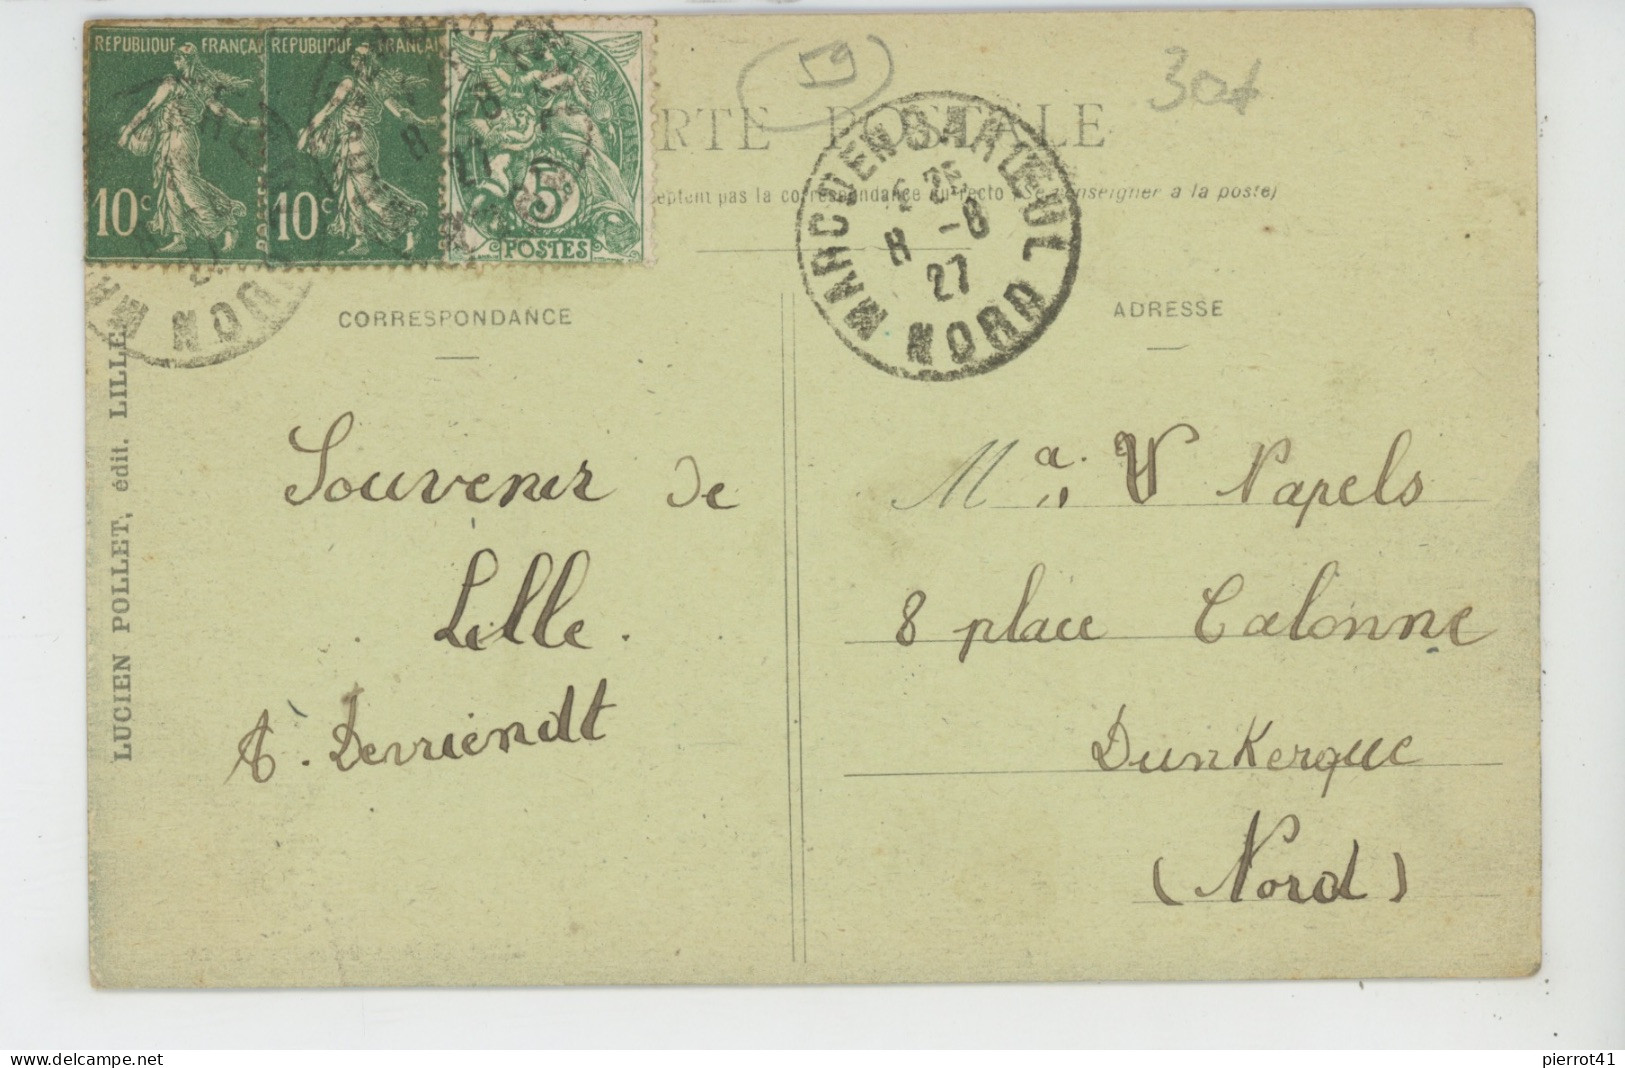 RÉPUBLIQUE FRANÇAI
10c
RÉPUBLIQUE FRANÇAI
10c
5
POSTES
59
30x
RTE POSTALE
eptent pas la correspondance au recto (Se renseigner à la poste)
MARCQ EN BARŒUL
25
8 -8
27
NORD
CORRESPONDANCE
ADRESSE
LUCIEN POLLET, édit. LILLE
Souvenir de
Lille.
A. Devriendt
Ma V Napels
8 place Calonne
Dunkerque
(Nord)
pierrot41